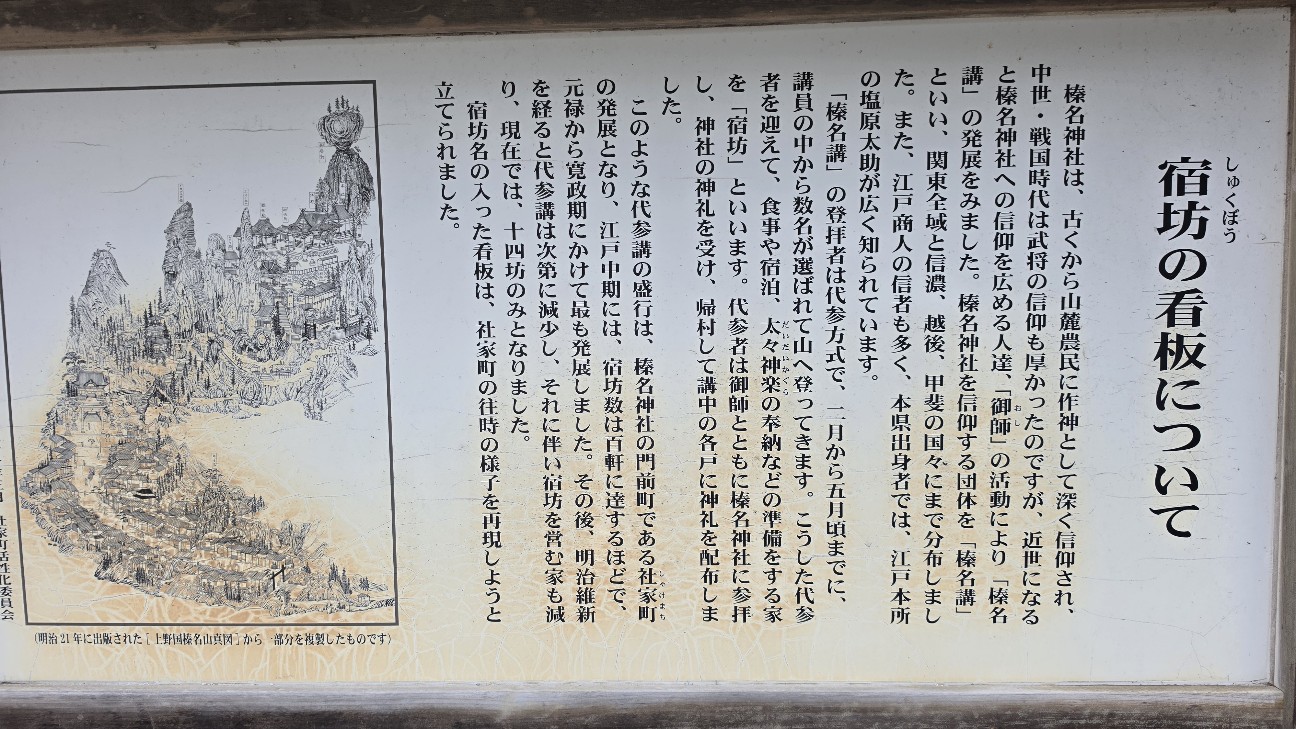 しゅくぼう
宿坊の看板について
榛名神社は、古くから山麓農民に作神として深く信仰され、
中世・戦国時代は武将の信仰も厚かったのですが、近世になる
と榛名神社への信仰を広める人達、「御師」の活動により「榛名
おし
講」の発展をみました。榛名神社を信仰する団体を「榛名講」
といい、関東全域と信濃、越後、甲斐の国々にまで分布しまし
た。また、江戸商人の信者も多く、本県出身者では、江戸本所
の塩原太助が広く知られています。
「榛名講」の登拝者は代参方式で、二月から五月頃までに、
講員の中から数名が選ばれて山へ登ってきます。こうした代参
者を迎えて、食事や宿泊、太々神楽の奉納などの準備をする家
だいだいかぐら
を「宿坊」といいます。代参者は御師とともに榛名神社に参拝
し、神社の神礼を受け、帰村して講中の各戸に神礼を配布しま
した。
このような代参講の盛行は、榛名神社の門前町である社家町
しゃけまち
の発展となり、江戸中期には、宿坊数は百軒に達するほどで、
元禄から寛政期にかけて最も発展しました。その後、明治維新
を経ると代参講は次第に減少し、それに伴い宿坊を営む家も減
り、現在では、十四坊のみとなりました。
宿坊名の入った看板は、社家町の往時の様子を再現しようと
立てられました。
(明治21年に出版された[上野国榛名山真図]から一部分を複製したものです)
社家町活性化委員会